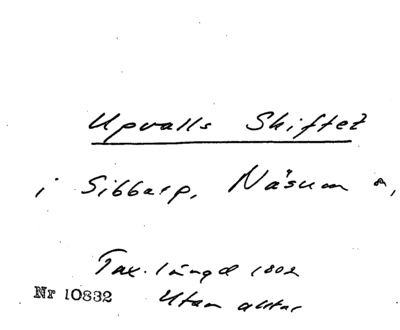 Upvalls Skiftet
i Sibbarp, Näsum n,
Tax. längd 1802
Nr 10832 Utan aktar